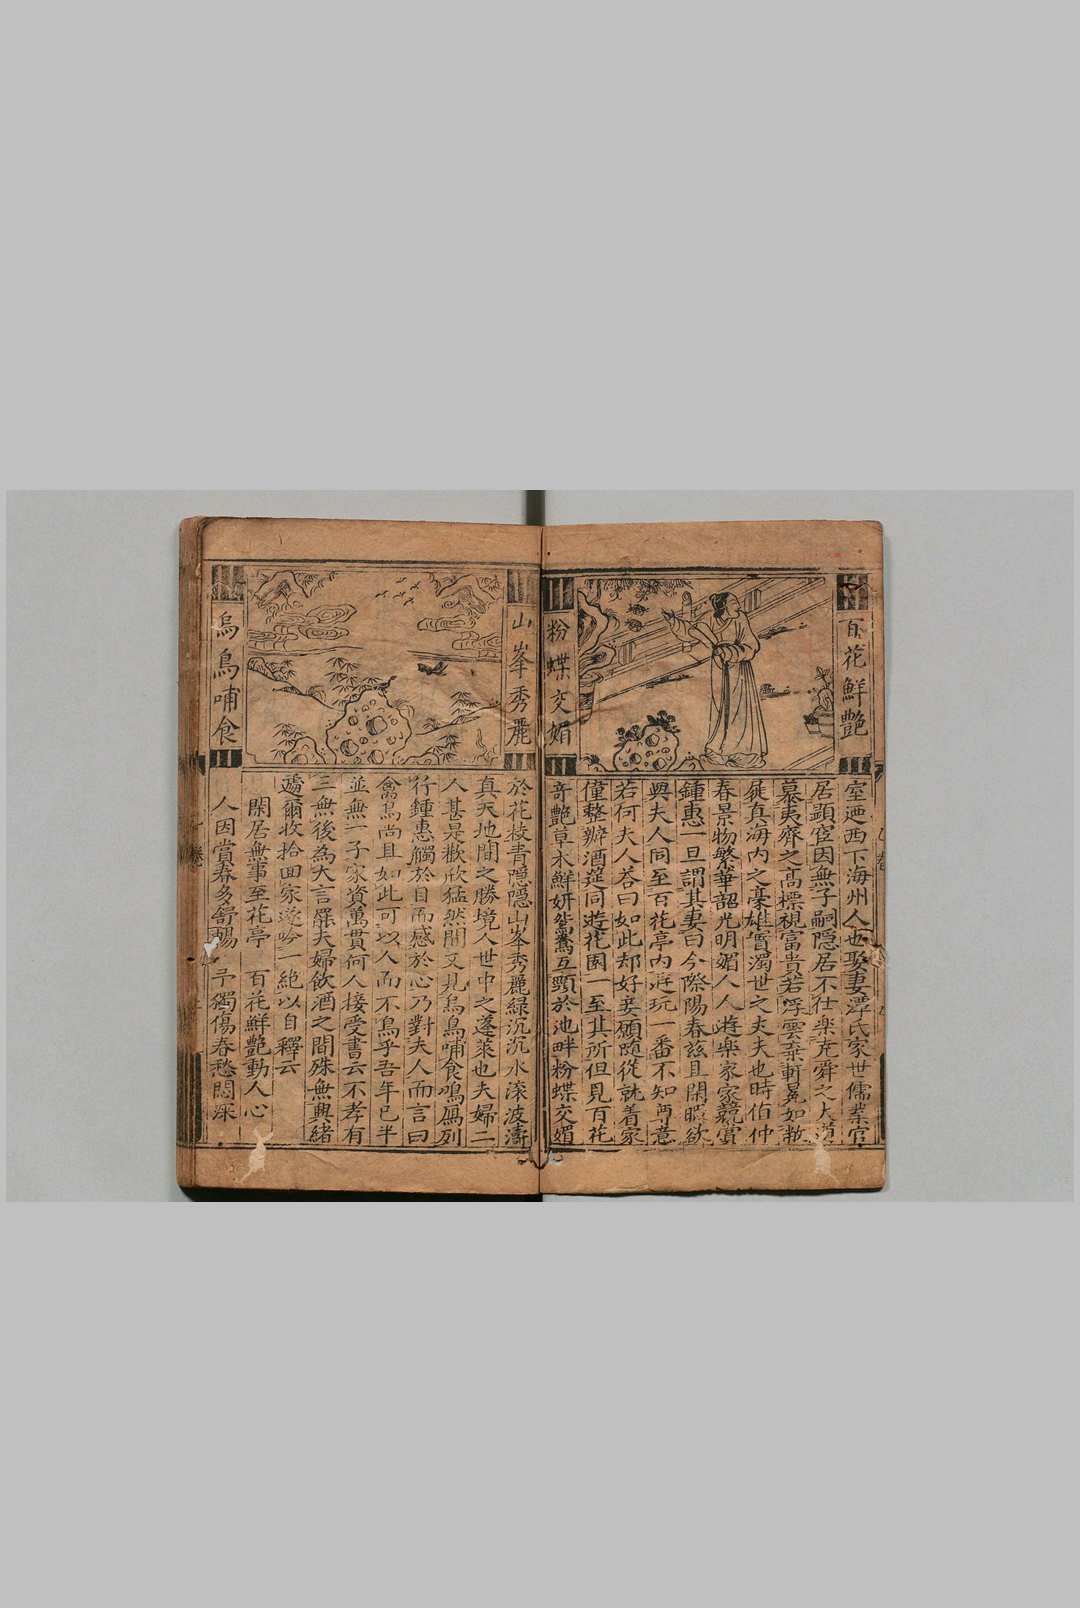 百花鮮艷
粉蝶交媚
室迺西下海州人也娶妻潭氏家世儒業官
居顕宦因無子嗣隠居不仕楽尭舜之大道
慕夷齊之高標視富貴若浮雲棄軒冕如敝
屣真海内之豪雄寔濁世之夫夫也時伯仲
春景物繁華韶光明媚人人遊楽家家競賞
鍾惠一旦謂其妻曰今際陽春茲且閑暇欲
與夫人同至百花亭内遊玩一番不知尊意
若何夫人荅曰如此却好妾願随從就着家
僮整辦酒筵同遊花園一至其所但見百花
竒艷草木鮮妍鴛鴦互頸於池畔粉蝶交媚
山峯秀麗
烏鳥哺食
於花枝青隠隠山峯秀麗緑沉沉水滚波濤
真天地間之勝境人世中之蓬萊也夫婦二
人甚是歡欣猛然間又見烏鳥哺食鳴鳫列
行鍾惠觸於目而感於心乃對夫人而言曰
禽鳥尚且如此可以人而不鳥乎吾年已半
並無一子家資萬貫何人接受書云不孝有
三無後為大言罷夫婦飲酒之間殊無興緒
遁爾收拾回家遂吟一絶以自釋云
閑居無事至花亭　百花鮮艷動人心
人因賞春多舒暢　予獨傷春愁悶深